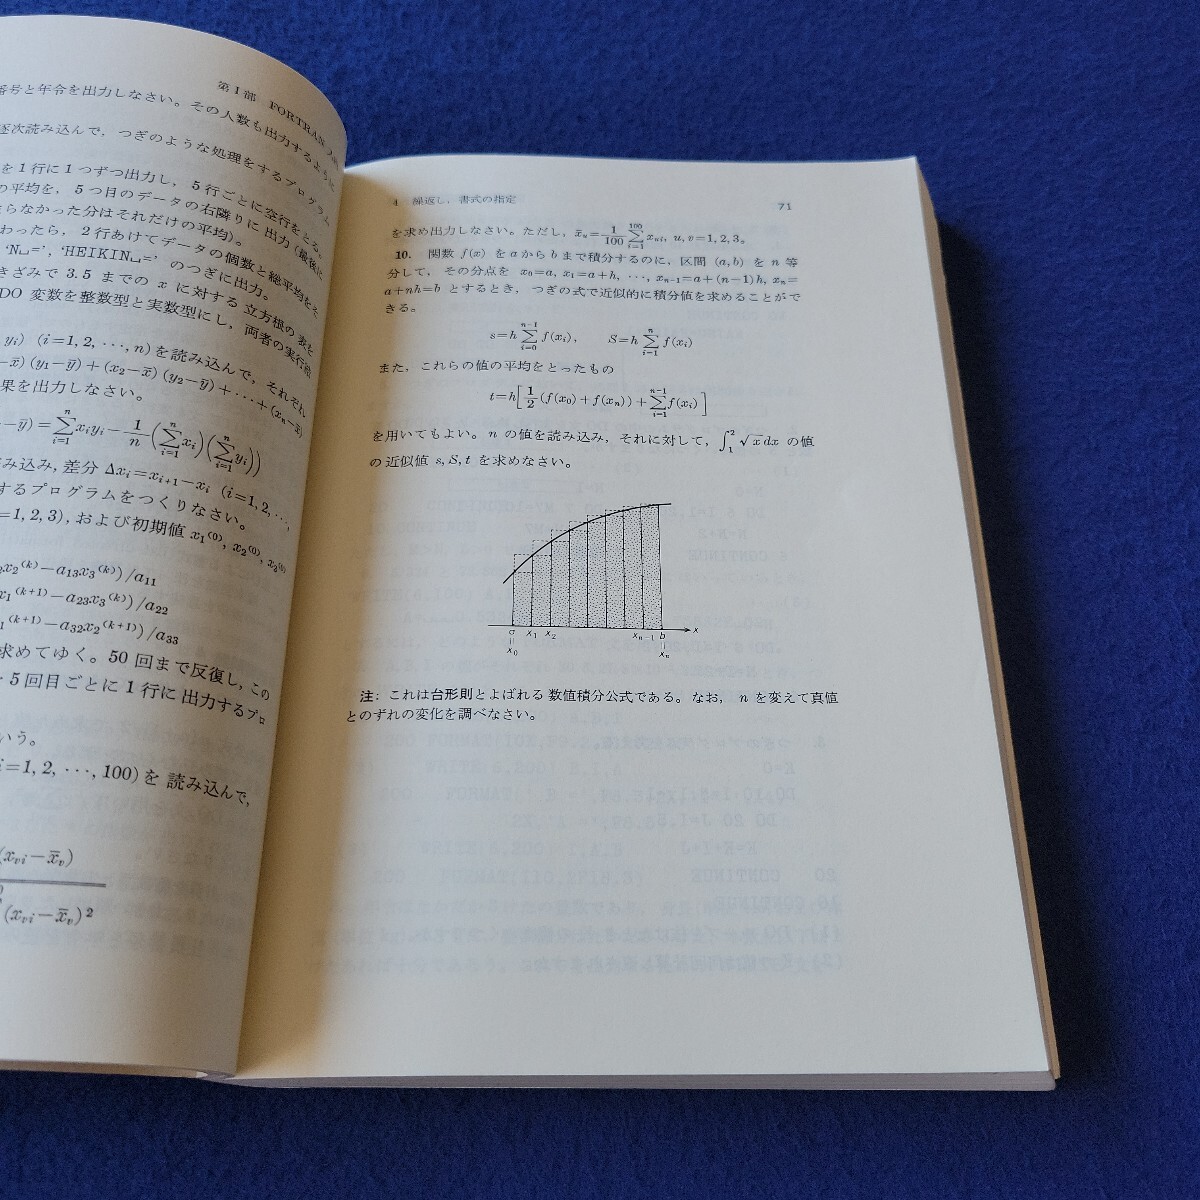 第Ⅰ部 FORTRAN 入
番号と年令を出力しなさい。その人数も出力するように
逐次読み込んで，つぎのような処理をするプログラム
を1行に1つずつ出力し，5行ごとに空行をとる。
の平均を，5つ目のデータの右隣りに出力(最後に
らなかった分はそれだけの平均)。
わったら，2行あけてデータの個数と総平均をそ
'N␣=', 'HEIKIN␣=' のつぎに出力。
きざみで 3.5 までの x に対する立方根の表を
DO 変数を整数型と実数型にし，両者の実行結
yᵢ) (i=1, 2, ···, n)を読み込んで，それぞれ
−x̄)(y₁−ȳ)+(x₂−x̄)(y₂−ȳ)+···+(xₙ−x̄)
果を出力しなさい。
−ȳ)=∑ⁿᵢ₌₁xᵢyᵢ−1/n(∑ⁿᵢ₌₁xᵢ)(∑ⁿᵢ₌₁yᵢ))
み込み，差分 Δxᵢ=xᵢ₊₁−xᵢ (i=1, 2, ···,
するプログラムをつくりなさい。
=1, 2, 3), および初期値 x₁⁽⁰⁾, x₂⁽⁰⁾, x₃⁽⁰⁾
x₂⁽ᵏ⁾−a₁₃x₃⁽ᵏ⁾)/a₁₁
x₁⁽ᵏ⁺¹⁾−a₂₃x₃⁽ᵏ⁾)/a₂₂
₁⁽ᵏ⁺¹⁾−a₃₂x₂⁽ᵏ⁺¹⁾)/a₃₃
求めてゆく。50 回まで反復し，この
5回目ごとに1行に出力するプロ
いう。
i=1, 2, ···, 100)を読み込んで，
(xᵥᵢ−x̄ᵥ)
(xᵥᵢ−x̄ᵥ)²
4 繰返し，書式の指定 71
を求め出力しなさい。ただし，x̄ᵤ=1/100 ∑¹⁰⁰ᵢ₌₁xᵤᵢ, u, v=1, 2, 3。
10. 関数 f(x) を a から b まで積分するのに，区間 (a, b) を n 等
分して，その分点を x₀=a, x₁=a+h, ···, xₙ₋₁=a+(n−1)h, xₙ=
a+nh=b とするとき，つぎの式で近似的に積分値を求めることがで
きる。
s=h∑ⁿ⁻¹ᵢ₌₀f(xᵢ), S=h∑ⁿᵢ₌₁f(xᵢ)
また，これらの値の平均をとったもの
t=h[1/2(f(x₀)+f(xₙ))+∑ⁿ⁻¹ᵢ₌₁f(xᵢ)]
を用いてもよい。n の値を読み込み，それに対して，∫₁²√x dx の値
の近似値 s, S, t を求めなさい。
a x₁ x₂ xₙ₋₁ b x
‖ ‖
x₀ xₙ
注：これは台形則とよばれる数値積分公式である。なお，n を変えて真値
とのずれの変化を調べなさい。